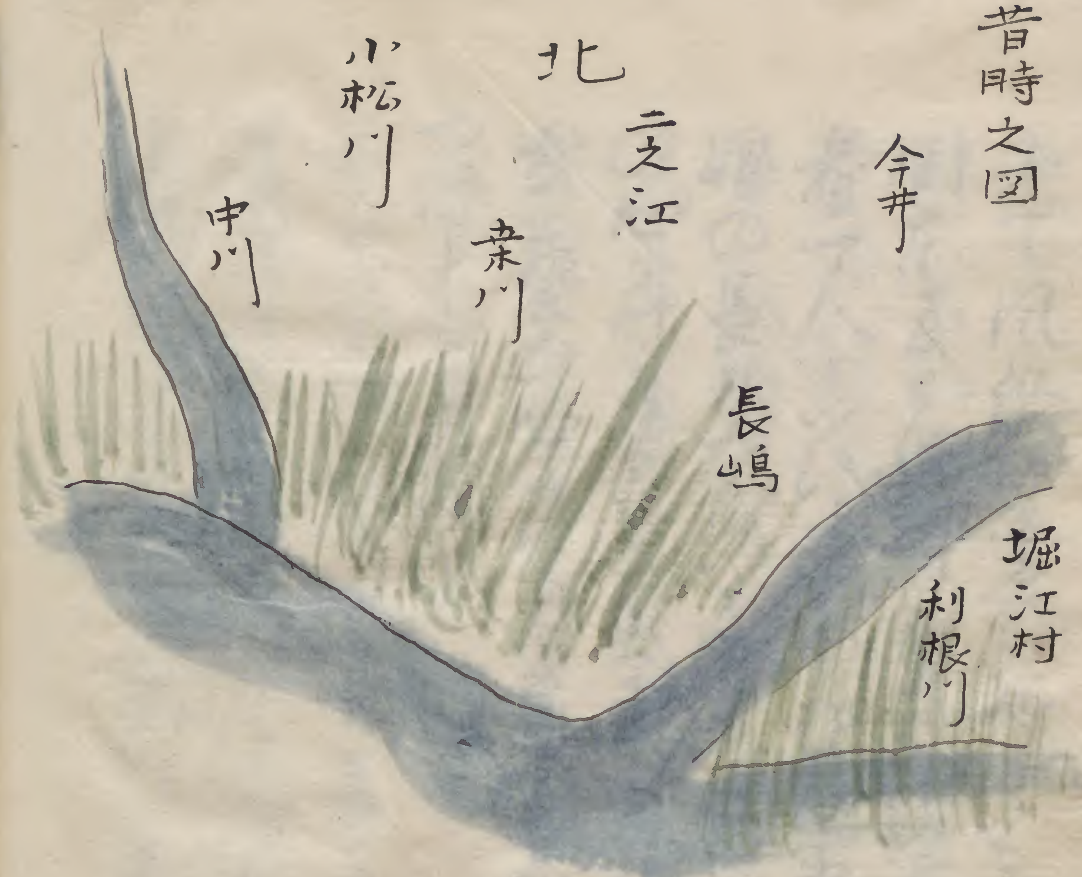 昔時之図
今井
北
二之江
小松川
桑川
中川
長嶋
堀江村
利根川